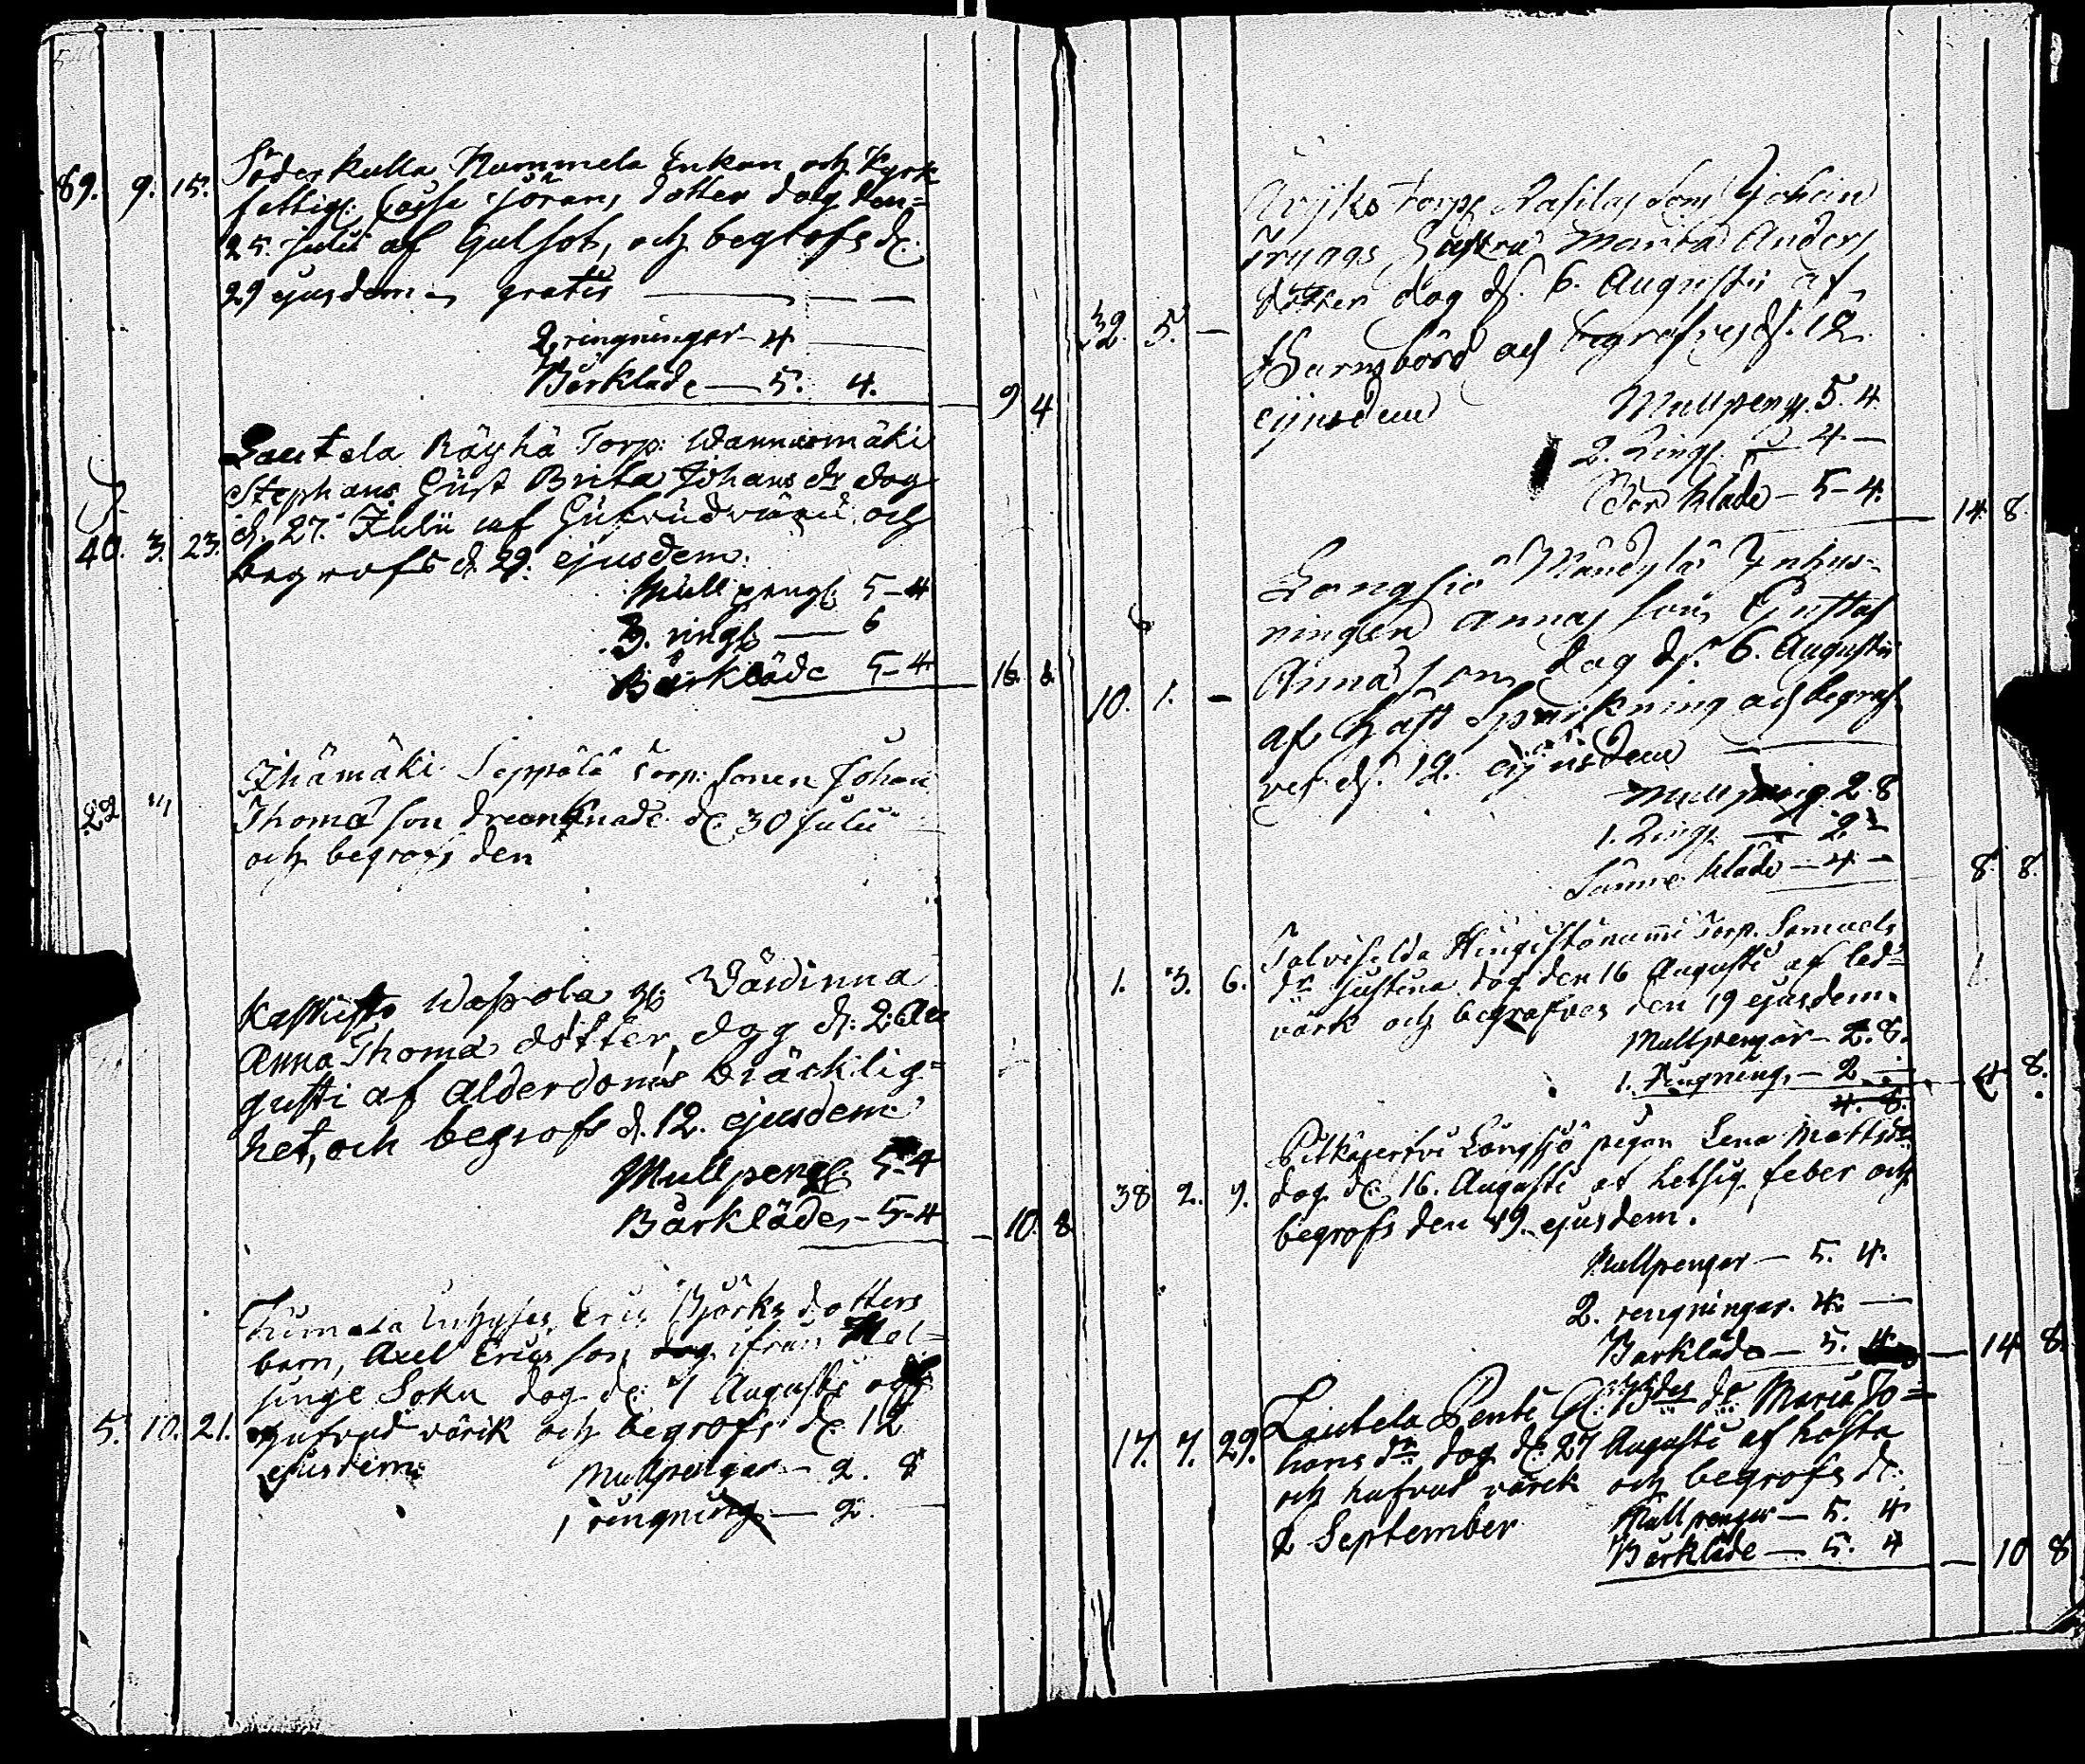 89. 9. 15. Söderkulla Nummela Enkan och kyrk=
fattig: Caisa Jörans dotter dog den=
25. Julii af Gulsot, och begrofs d:
29 ejusdem gratis — — —
2 ringningar — 4 —
Bårkläde — 5. 4. — 9 4
Lautela Räyhä Torp: Wannasmäki
Stephans Hust Brita Johans dr dog
40. 3. 23. d. 27. Julii af Hufvudvärk och
begrofs d. 29. ejusdem.
Mullpeng: 5–4
3. ring: — 6
Bårkläde 5–4 16. 8.
Ihämäki Seppälä torp: sonen Johan
22 Thomasson drunknade d: 30 Julii
och begrofs den
Wäwinna
Anna Thomas dotter, dog d. 2. Au
gusti af Alderdoms bräcklig=
het, och begrofs d. 12. ejusdem.
Mullpeng: 5–4
Bårkläde, – 5–4 – 10. 8
Inhyses Eric Björks dotters
barn, Axel Ericsson dog ifrån Hel=
singe Sokn dog d: 7 Augusti af
5. 10. 21. hufvud värck och begrofs d: 12
ejusdem Mullpengar – 2. 8
1 ringning — 2.
Torp Johan
Tryggs Hustru Maria Anders
dotter dog d. 6. Augusti af
32. 5. — Barnsbörd och begrofves d. 12
ejusdem Mullpeng. 5. 4
2. Ring. — 4 —
Bår kläde – 5–4. 14. 8.
Långsjö Mändylä Inhys=
ningen Annas son, Gustaf
Annasson dog d. 6. Augusti
10. 1. – af häst Sparkning och begraf
ves d. 12. ejusdem —
Mullpeng. 2. 8
1. Ring. — 2. –
Samme kläde – 4 – 8. 8.
Torp. Samuels
1. 3. 6. dr Justina dog den 16 Augusti af led=
värk och begrafves den 19 ejusdem.
Mullpengar – 2. 8.
1. Ringning, – 2 – 4 8.
4. 8.
Pitkäjervi Långsjö pigan Lena Mattsdr
38 2. 9. dog d: 16. Augusti af hetsig feber och
begrofs den 19. ejusdem.
Mullpengar — 5. 4.
2. rengningar. 4. —
Barkläde — 5. 4 — 14 8.
Lautela Penti Bdes dr Maria Jo=
17. 7. 29. hans dr dog d: 27 Augusti af hosta
och hufvud värck och begrofs d:
2 September Mullpengar — 5. 4
Barkläde — 5. 4 — 10 8